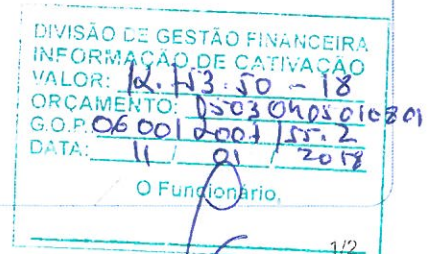 DIVISÃO DE GESTÃO FINANCEIRA
INFORMAÇÃO DE CATIVAÇÃO
VALOR: 12.153.50 - 18
ORÇAMENTO: 0503 0405010801
G.O.P. 06 001 2001 / 55.2
DATA: 11 / 01 / 2018
O Funcionário,
1/2